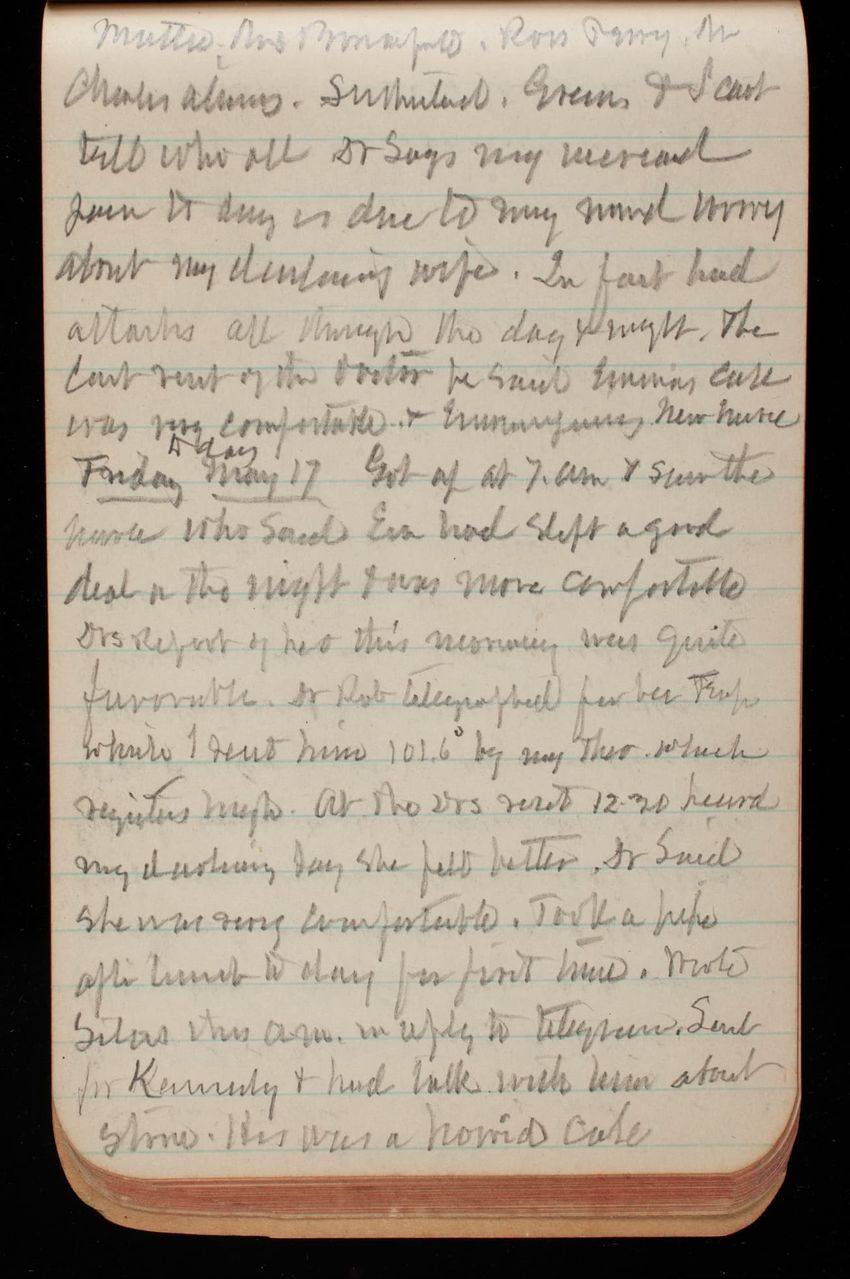 Charles alms. Greens & I cant
tell who all Dr Says my increased
pain to day is due to my mind worry
about my darling wife. In fact had
attacks all through the day & night. The
last visit of the doctor he said Emmas case
was very comfortable. & Encouraging New nurse
to day
Friday May 17 Got up at 7. am & saw the
nurse who said Em had slept a good
deal in the night & was more comfortable
Drs Report of her this morning was quite
favorable. Dr Rob telegraphed for her Temp
which I sent him 101.6° by my Ther. which
registers high. At the Drs visit 12-30 heard
my darling say she felt better. Dr Said
she was very comfortable. Took a pipe
after lunch to day for first time. Wrote
Silas this a.m. in reply to telegram. Sent
for Kennedy & had talk with him about
stone. His was a horrid case